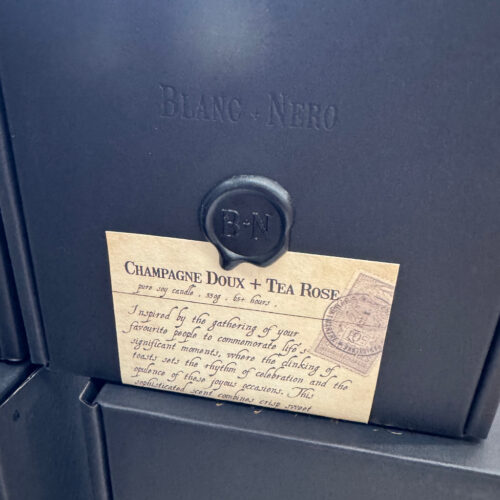 BLANC + NERO
B-N
CHAMPAGNE DOUX + TEA ROSE
pure soy candle . 330g . 65+ hours .
Inspired by the gathering of your
favourite people to commemorate life's
significant moments, where the clinking of
toasts sets the rhythm of celebration and the
opulence of these joyous occasions. This
sophisticated scent combines crisp sweet